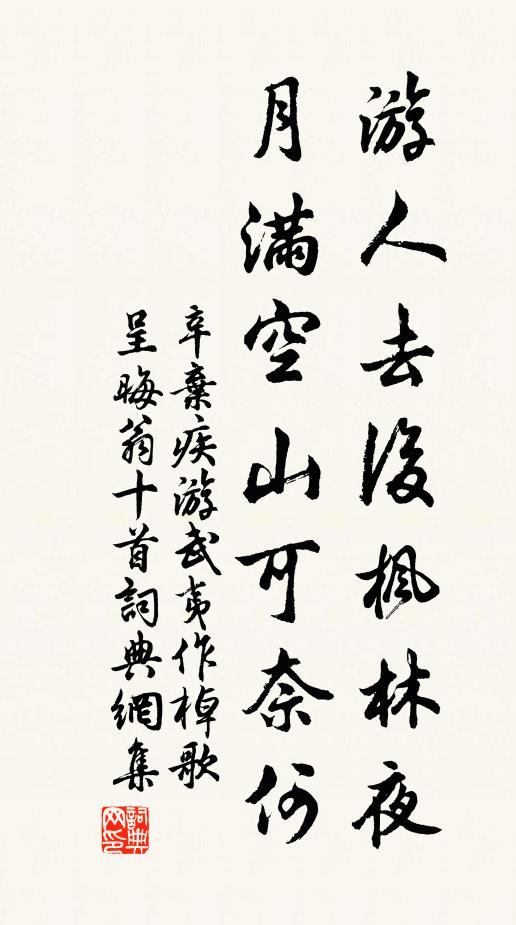 游人去後楓林夜
月滿空山可奈何
辛棄疾游武夷作棹歌
呈晦翁十首詞典網集
詞典
网印